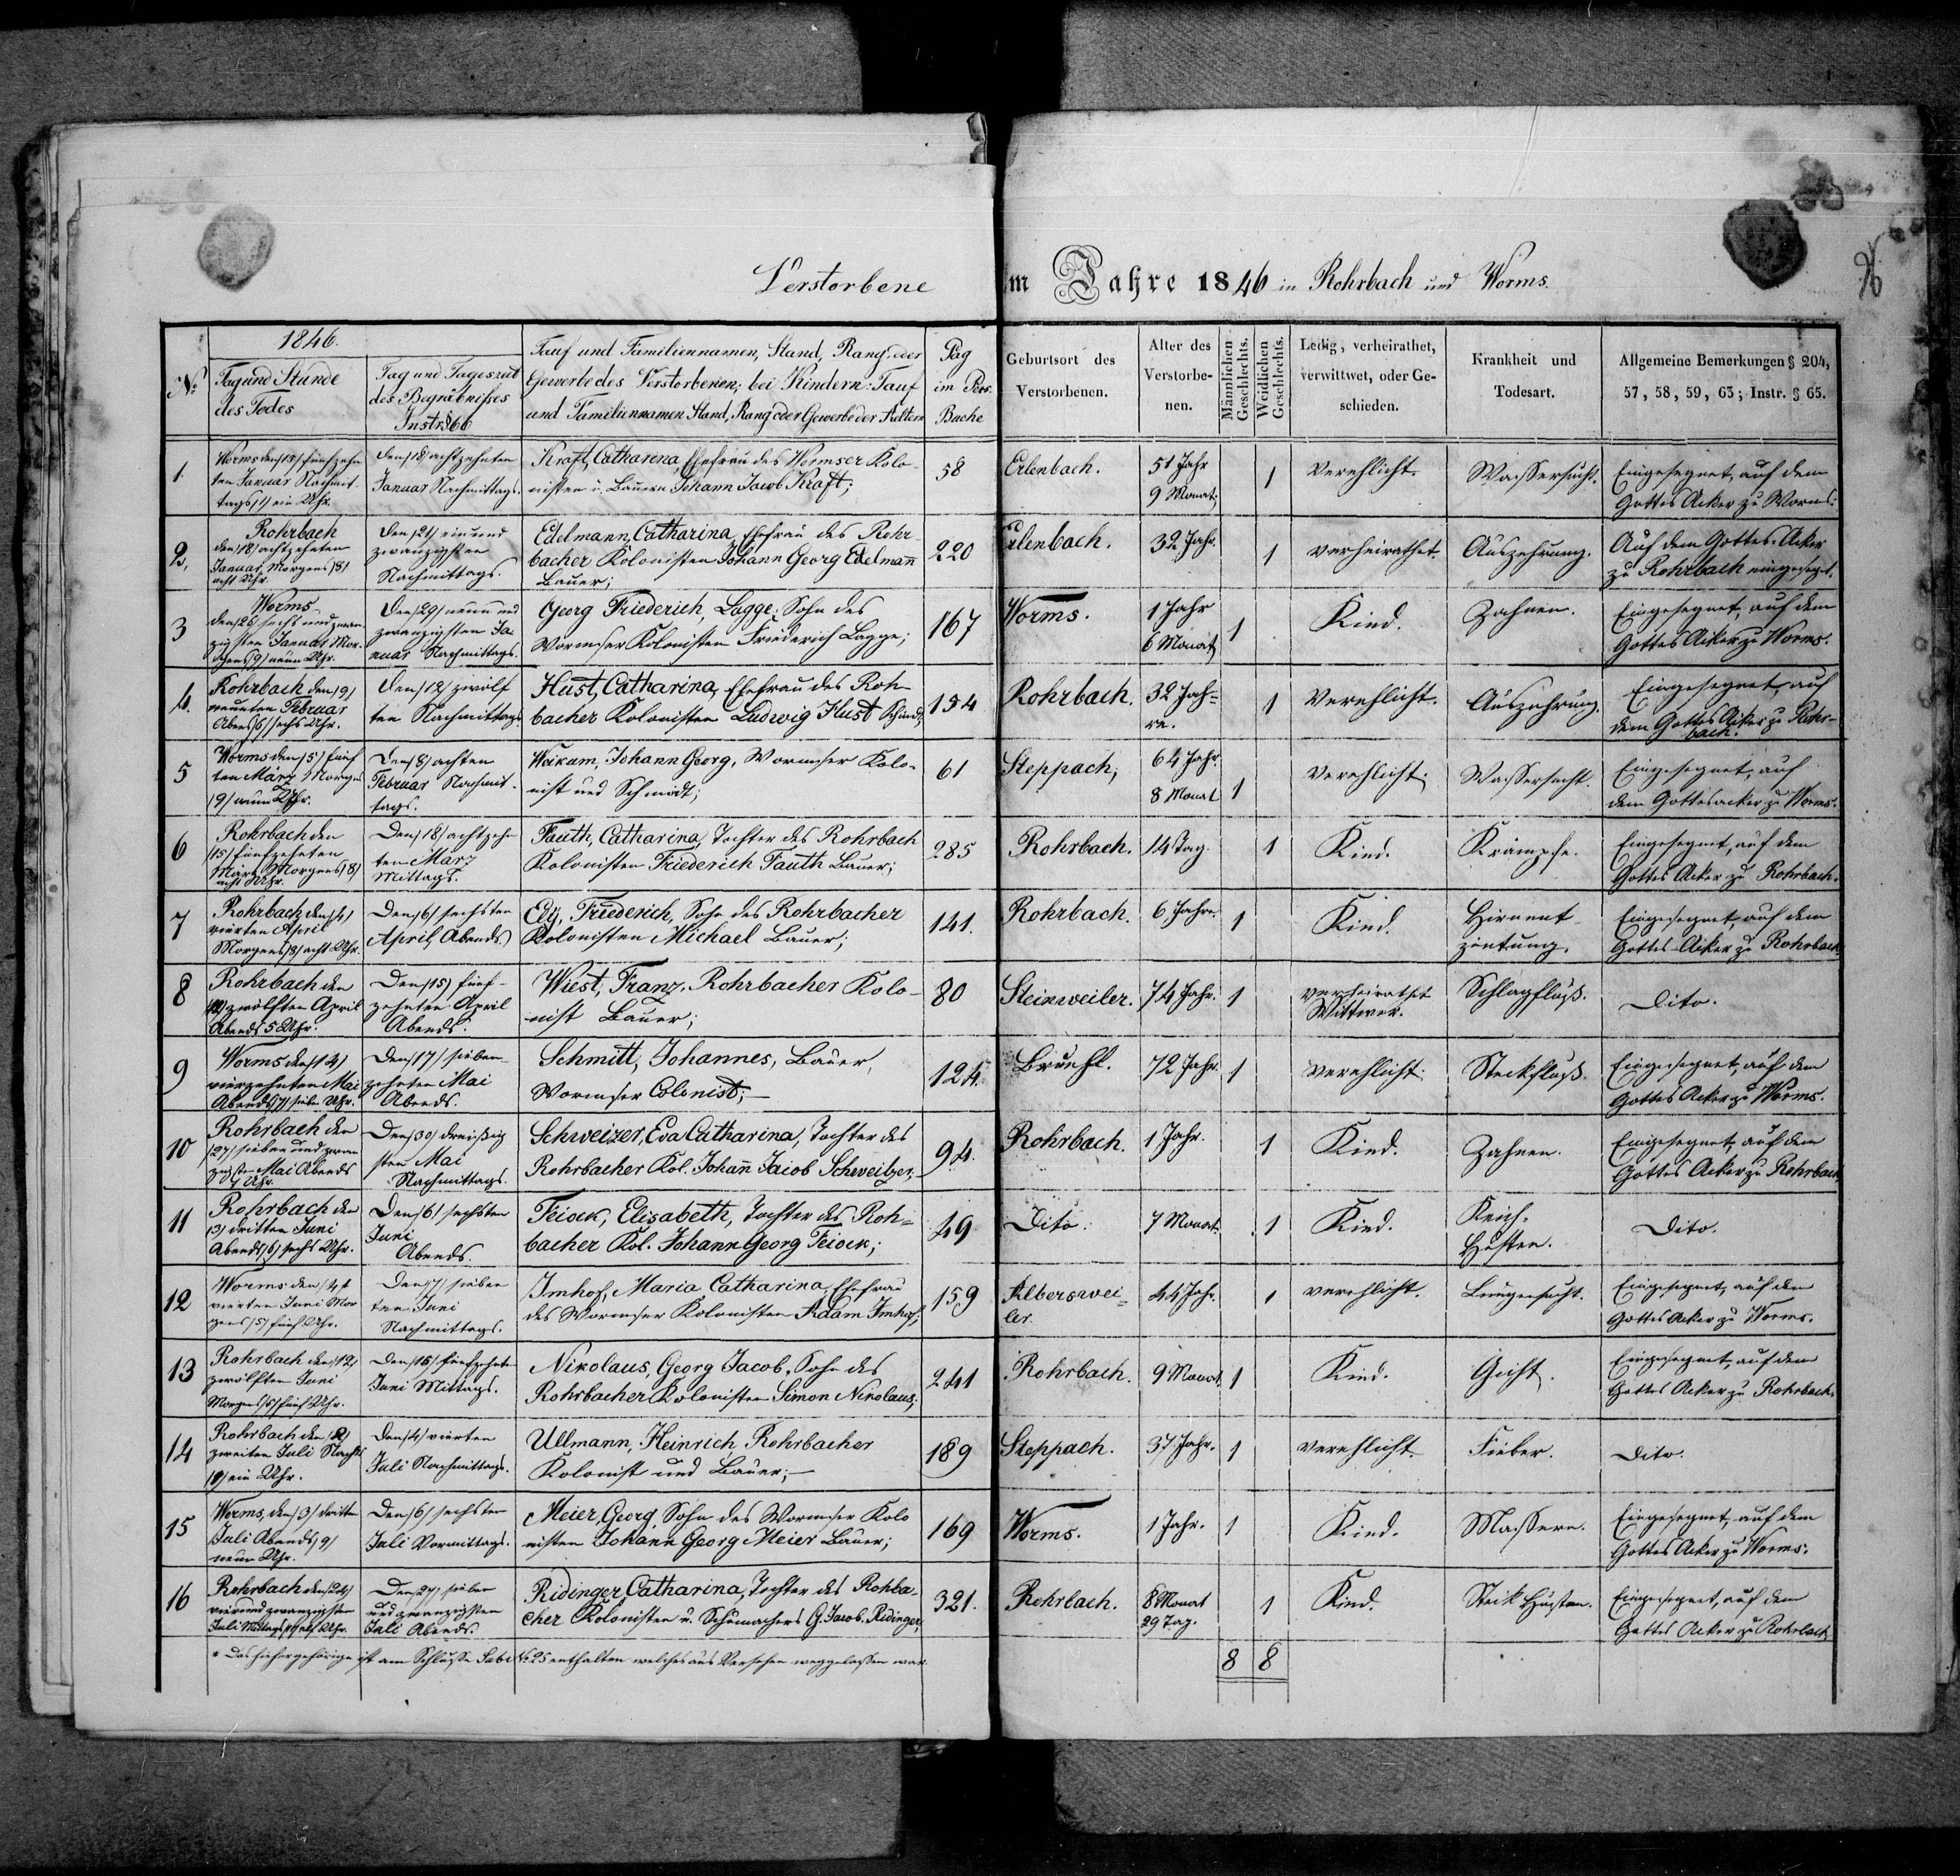 Verstorbene im Jahre 1846 in Rohrbach und Worms.
96
1846.
No
Tag und Stunde
des Todes
Tag und Tageszeit
des Begräbnisses
Instr. § 66
Tauf und Familiennamen, Stand, Rang oder
Gewerbe des Verstorbenen; bei Kindern: Tauf
und Familiennamen Stand, Rang oder Gewerbe der Aeltern
Pag
im Pers.
Buche
Geburtsort des
Verstorbenen.
Alter des
Verstorbe-
nen.
Männlichen
Geschlechts.
Weiblichen
Geschlechts.
Ledig, verheirathet,
verwittwet, oder Ge-
schieden.
Krankheit und
Todesart.
Allgemeine Bemerkungen § 204,
57, 58, 59, 63; Instr. § 65.
1.
Worms den /15/ fünfzehn
ten Januar Nachmit
tags /1/ ein Uhr.
Den /18/ achtzehnten
Januar Nachmittags.
Kraft, Catharena, Ehefrau des Wormser Kolo-
nisten u. Bauern Johann Jacob Kraft;
58
Erlenbach.
51 Jahr
9 Monat;
1
Verehlicht.
Wassersucht.
Eingesegnet, auf dem
Gottes Acker zu Worms.
2.
Rohrbach
den /18/ achtzehnten
Januar Morgens /8/
acht Uhr.
Den /21/ ein und
zwanzigsten
Nachmittags.
Edelmann, Catharina, Ehefrau des Rohr-
bacher Kolonisten Johann Georg Edelmann
Bauer;
220
Erlenbach.
32 Jahr.
1
verheirathet.
Auszehrung.
Auf dem Gottes-Acker
zu Rohrbach eingesegt.
3
Worms
den /26/ sechs und zwan
zigsten Januar Mor-
gens /9/ neun Uhr.
Den /29/ neun und
zwanzigsten Ja-
nuar Nachmittags.
Georg Friederich, Lagge: Sohn des
Wormser Kolonisten Friederich Lagge;
167
Worms.
1 Jahr
6 Monat
1
Kind.
Zahnen.
Eingesegnet, auf dem
Gottes Acker zu Worms.
4.
Rohrbach den /9/
neunten Februar
Abend /6/ sechs Uhr.
Den /12/ zwölf
ten Nachmittags
Hust, Catharina, Ehefrau des Roh-
bacher Kolonisten Ludwig Hust
154
Rohrbach.
32 Jah-
re.
1
Verehlicht.
Auszehrung.
Eingesegnet, auf
dem Gottes Acker zu Rohr-
bach.
5
Worms den /5/ fünf
ten März Morgens
/9/ neun Uhr.
Den /8/ achten
Februar Nachmit-
tags.
Weikum, Johann Georg, Wormser Kolo-
nist und Schmidt;
61
Steppach;
64 Jahr.
8 Monat
1
Verehlicht.
Wassersucht.
Eingesegnet, auf
dem Gottesacker zu Worms.
6
Rohrbach den
/15/ fünfzehnten
März Morgens /8/
acht Uhr.
Den /18/ achtzehn
ten März
Mittags.
Fauth, Catharina, Tochter des Rohrbach
Kolonisten Friederich Fauth Bauer;
285
Rohrbach.
14 Tag.
1
Kind.
Krämpfe.
Eingesegnet, auf dem
Gottes Acker zu Rohrbach.
7
Rohrbach den /4/
vierten April
Morgens /8/ acht Uhr.
Den /6/ sechsten
April Abends.
Edÿ, Friederich, Sohn des Rohrbacher
Kolonisten Michael Bauer;
141.
Rohrbach.
6 Jahre.
1
Kind.
Hirnent-
zintung.
Eingesegnet, auf dem
Gottes-Acker zu Rohrbach
8
Rohrbach den
/12/ zwölften April
Abends 5 Uhr.
Den /15/ fünf-
zehnten April
Abends.
Wiest, Franz, Rohrbacher Kolo-
nist Bauer;
80
Steinweiler.
74 Jahr.
1
verheirathet
Wittwer.
Schlagfluß.
Dito.
9
Worms den /14/
vierzehnten Mai
Abends /7/ sieben Uhr.
Den /17/ sieben-
zehnten Mai
Abends.
Schmitt, Johannes, Bauer,
Wormser Colonist;
124.
Bruehl.
72 Jahr.
1
Verehlicht.
Steckfluß.
Eingesegnet, auf dem
Gottes Acker zu Worms.
10
Rohrbach den
/27/ sieben und zwan
zigsten Mai Abends
Uhr.
Den /30/ dreißig
sten Mai
Nachmittags.
Schweizer, Eva Catharina, Tochter des
Rohrbacher Kol. Johann Jaiob Schweitzer;
94.
Rohrbach.
1 Jahr.
1
Kind.
Zahnen.
Eingesegnet, auf dem
Gottes Acker zu Rohrbach
11
Rohrbach den
/3/ dritten Juni
Abends /6/ sechs Uhr.
Den /6/ sechsten
Juni
Abends.
Feiock, Elisabeth, Tochter des Roh-
bacher Kol. Johann Georg Feiock;
49
Dito.
7 Monat.
1
Kind.
Keich-
Husten.
Dito.
12
Worms den /4/
vierten Juni Mor
gens /5/ fünf Uhr.
Den /7/ sieben
ten Juni
Nachmittags.
Imhof, Maria Catharina, Ehefrau
des Wormser Kolonisten Adam Imhof;
159
Alberswei-
ler.
44 Jahr.
1
verehlicht.
Lungensucht.
Eingesegnet, auf dem
Gottes Acker zu Worms.
13
Rohrbach den /12/
zwölften Juni
Morgens /5/ fünf Uhr.
Den /15/ fünfzehnten
Juni Mittags.
Nikolaus, Georg Jacob, Sohn des
Rohrbacher Kolonisten Simon Nikolaus;
241
Rohrbach.
9 Monat.
1
Kind.
Gicht.
Eingesegnet, auf dem
Gottes Acker zu Rohrbach.
14
Rohrbach den /2/
zweiten Juli Nachts
/1/ ein Uhr.
Den /4/ vierten
Juli Nachmittags.
Ullmann, Heinrich, Rohrbacher
Kolonist und Bauer;
189
Steppach.
37 Jahr.
1
verehlicht.
Fieber.
Dito.
15
Worms, den /3/ dritten
Juli Abends /9/
neun Uhr.
Den /6/ sechsten
Juli Vormittags.
Meier, Georg, Sohn des Wormser Kolo
nisten Johann Georg Meier Bauer;
169
Worms.
1 Jahr.
1
Kind.
Massern.
Eingesegnet, auf dem
Gottes Acker zu Worms.
16
Rohrbach den /24/
vierund zwanzigsten
Juli Mittags Uhr.
Den /27/ sieben
und zwanzigsten
Juli Abends.
Ridinger Catharina, Tochter des Rohba-
cher Kolonisten u. Schumachers G. Jacob Ridinger;
321.
Rohrbach.
8 Monat
29 Tag.
1
Kind.
Stick Husten.
Eingesegnet, auf dem
Gottes Acker zu Rohrbach
* Das hiehergehörige ist am Schlusse Sub No 25 enthalten welches aus Versehen weggelassen war.
8 8